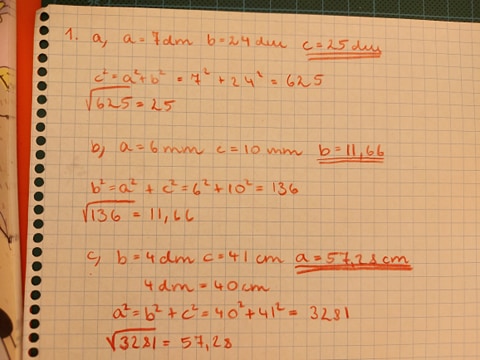 1. a, a = 7 dm b = 24 dm c = 25 dm
c² = a² + b² = 7² + 24² = 625
√625 = 25
b, a = 6 mm c = 10 mm b = 11,66
b² = a² + c² = 6² + 10² = 136
√136 = 11,66
c, b = 4 dm c = 41 cm a = 57,28 cm
4 dm = 40 cm
a² = b² + c² = 40² + 41² = 3281
√3281 = 57,28